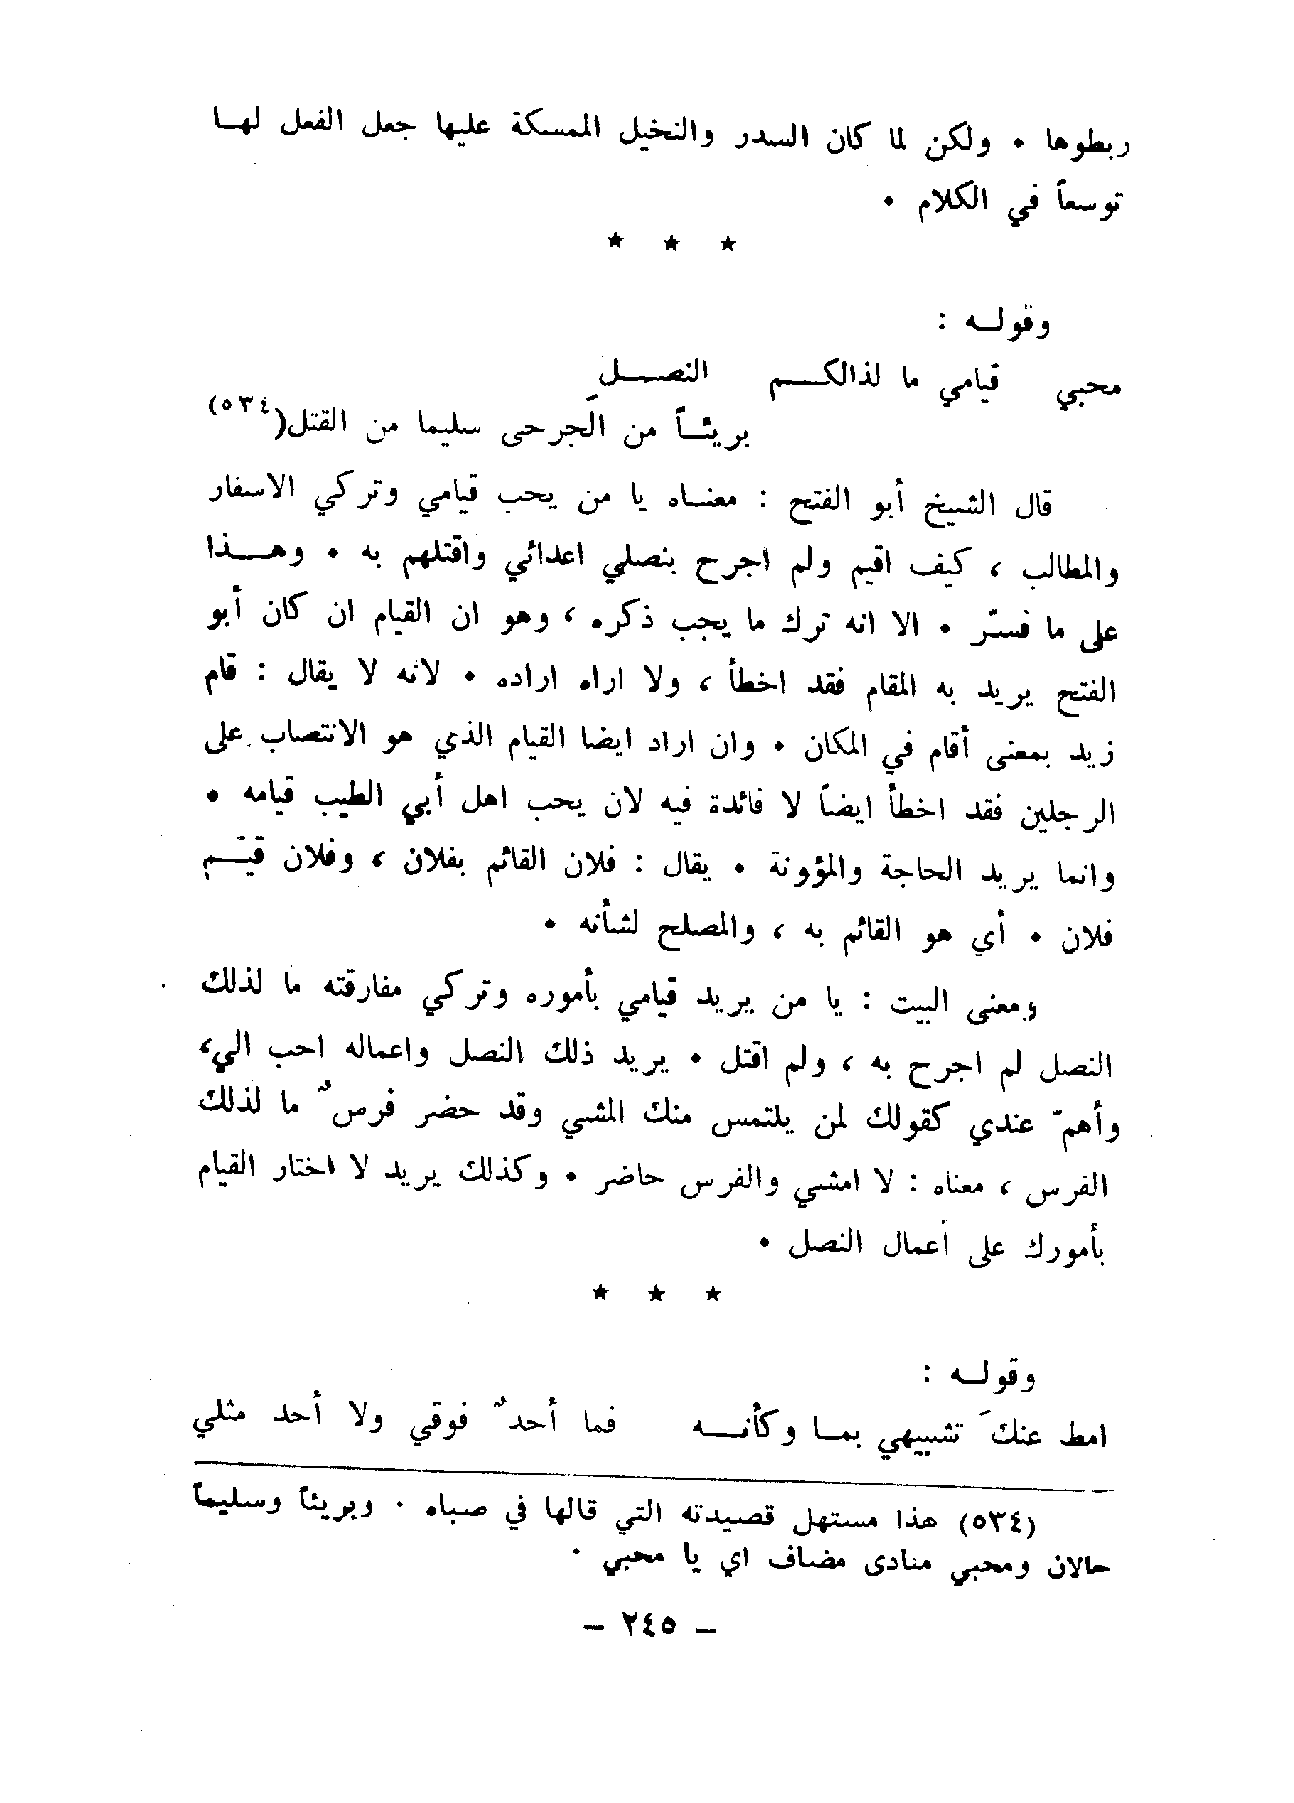 ربطوها • ولكن لما كان السدر والنخيل الممسكة عليها جعل الفعل لهـا
توسعاً في الكلام •
* * *
وقولـه :
محبي قيامي ما لذالكـــم النصـــل
بريئـاً من الجرحى سليما من القتل(٥٣٤)
قال الشيخ أبو الفتح : معنـاه يا من يحب قيامي وتركي الاسفار
والمطالب ، كيف اقيم ولم اجرح بنصلي اعدائي واقتلهم به • وهـــذا
على ما فسّر • الا انه ترك ما يجب ذكره ، وهو ان القيام ان كان أبو
الفتح يريد به المقام فقد اخطأ ، ولا اراه اراده • لانه لا يقال : قام
زيد بمعنى أقام في المكان • وان اراد ايضا القيام الذي هو الانتصاب على
الرجلين فقد اخطأ ايضاً لا فائدة فيه لان يحب اهل أبي الطيب قيامه •
وانما يريد الحاجة والمؤونة • يقال : فلان القائم بفلان ، وفلان قيّـم
فلان • أي هو القائم به ، والمصلح لشأنه •
ومعنى البيت : يا من يريد قيامي بأموره وتركي مفارقته ما لذلك
النصل لم اجرح به ، ولم اقتل • يريد ذلك النصل واعماله احب الي،
وأهمّ عندي كقولك لمن يلتمس منك المشي وقد حضر فرسٌ ما لذلك
الفرس ، معناه : لا امشي والفرس حاضر • وكذلك يريد لا اختار القيام
بأمورك على أعمال النصل •
* * *
وقولـه :
امط عنكَ تشبيهي بمـا وكأنـــه فما أحدٌ فوقي ولا أحد مثلي
(٥٣٤) هذا مستهل قصيدته التي قالها في صباه • وبريئاً وسليماً
حالان ومحبي منادى مضاف اي يا محبي •
– ٢٤٥ –